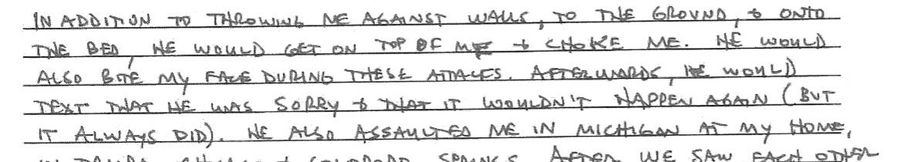 IN ADDITION TO THROWING ME AGAINST WALLS, TO THE GROUND, & ONTO
THE BED, HE WOULD GET ON TOP OF ME & CHOKE ME. HE WOULD
ALSO BITE MY FACE DURING THESE ATTACKS. AFTERWARDS, HE WOULD
TEXT THAT HE WAS SORRY & THAT IT WOULDN'T HAPPEN AGAIN (BUT
IT ALWAYS DID). HE ALSO ASSAULTED ME IN MICHIGAN AT MY HOME,
SPRINGS. AFTER WE SAW EACH OTHER